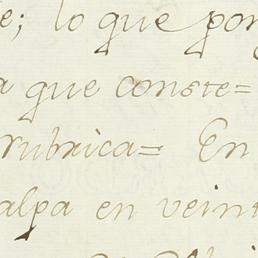 e; lo que pon
a que conste=
rubrica= En
alpa en veint